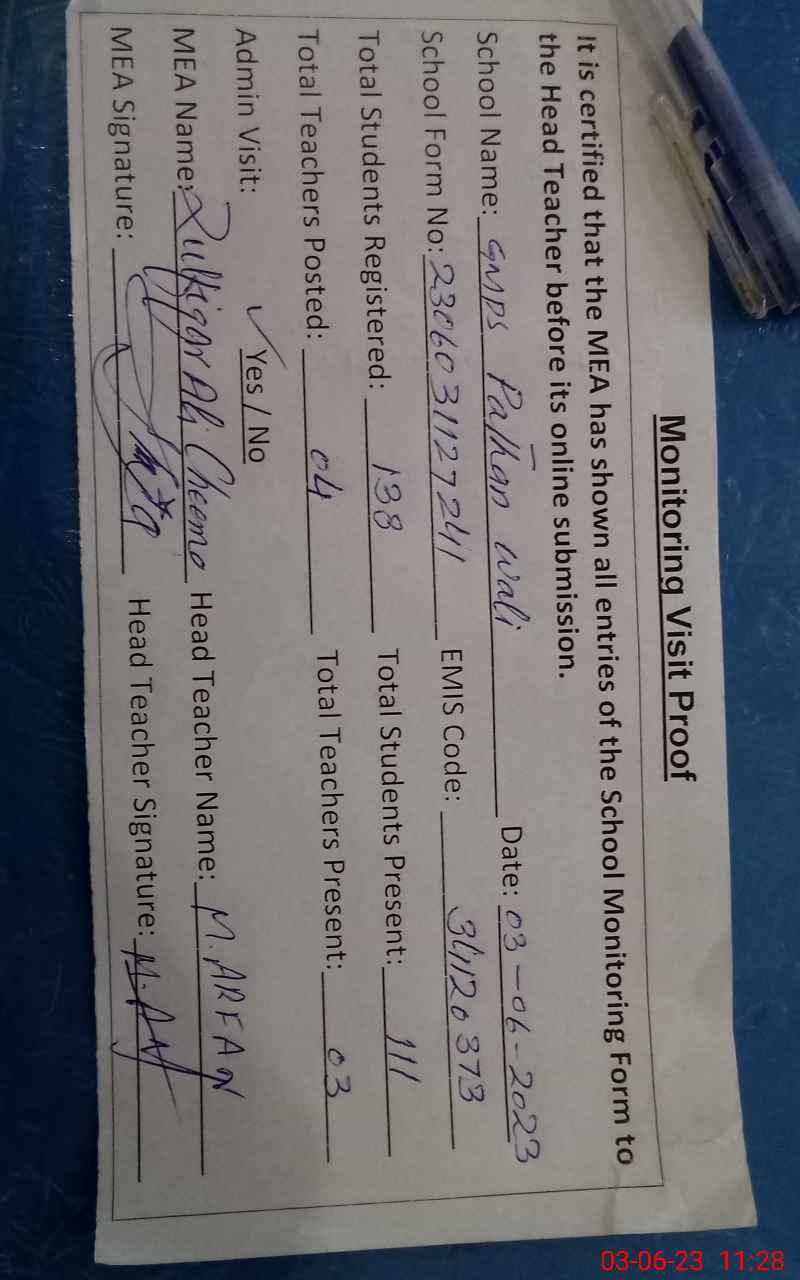 Monitoring Visit Proof
It is certified that the MEA has shown all entries of the School Monitoring Form to
the Head Teacher before its online submission.
School Name: GMPS Pathan wali Date: 03-06-2023
School Form No: 2306031127241 EMIS Code: 34120373
Total Students Registered: 138 Total Students Present: 111
Total Teachers Posted: 04 Total Teachers Present: 03
Admin Visit: ✓ Yes / No
MEA Name: Zulfiqar Ali Cheema Head Teacher Name: M. ARFAN
MEA Signature: Head Teacher Signature: M. 
03-06-23 11:28